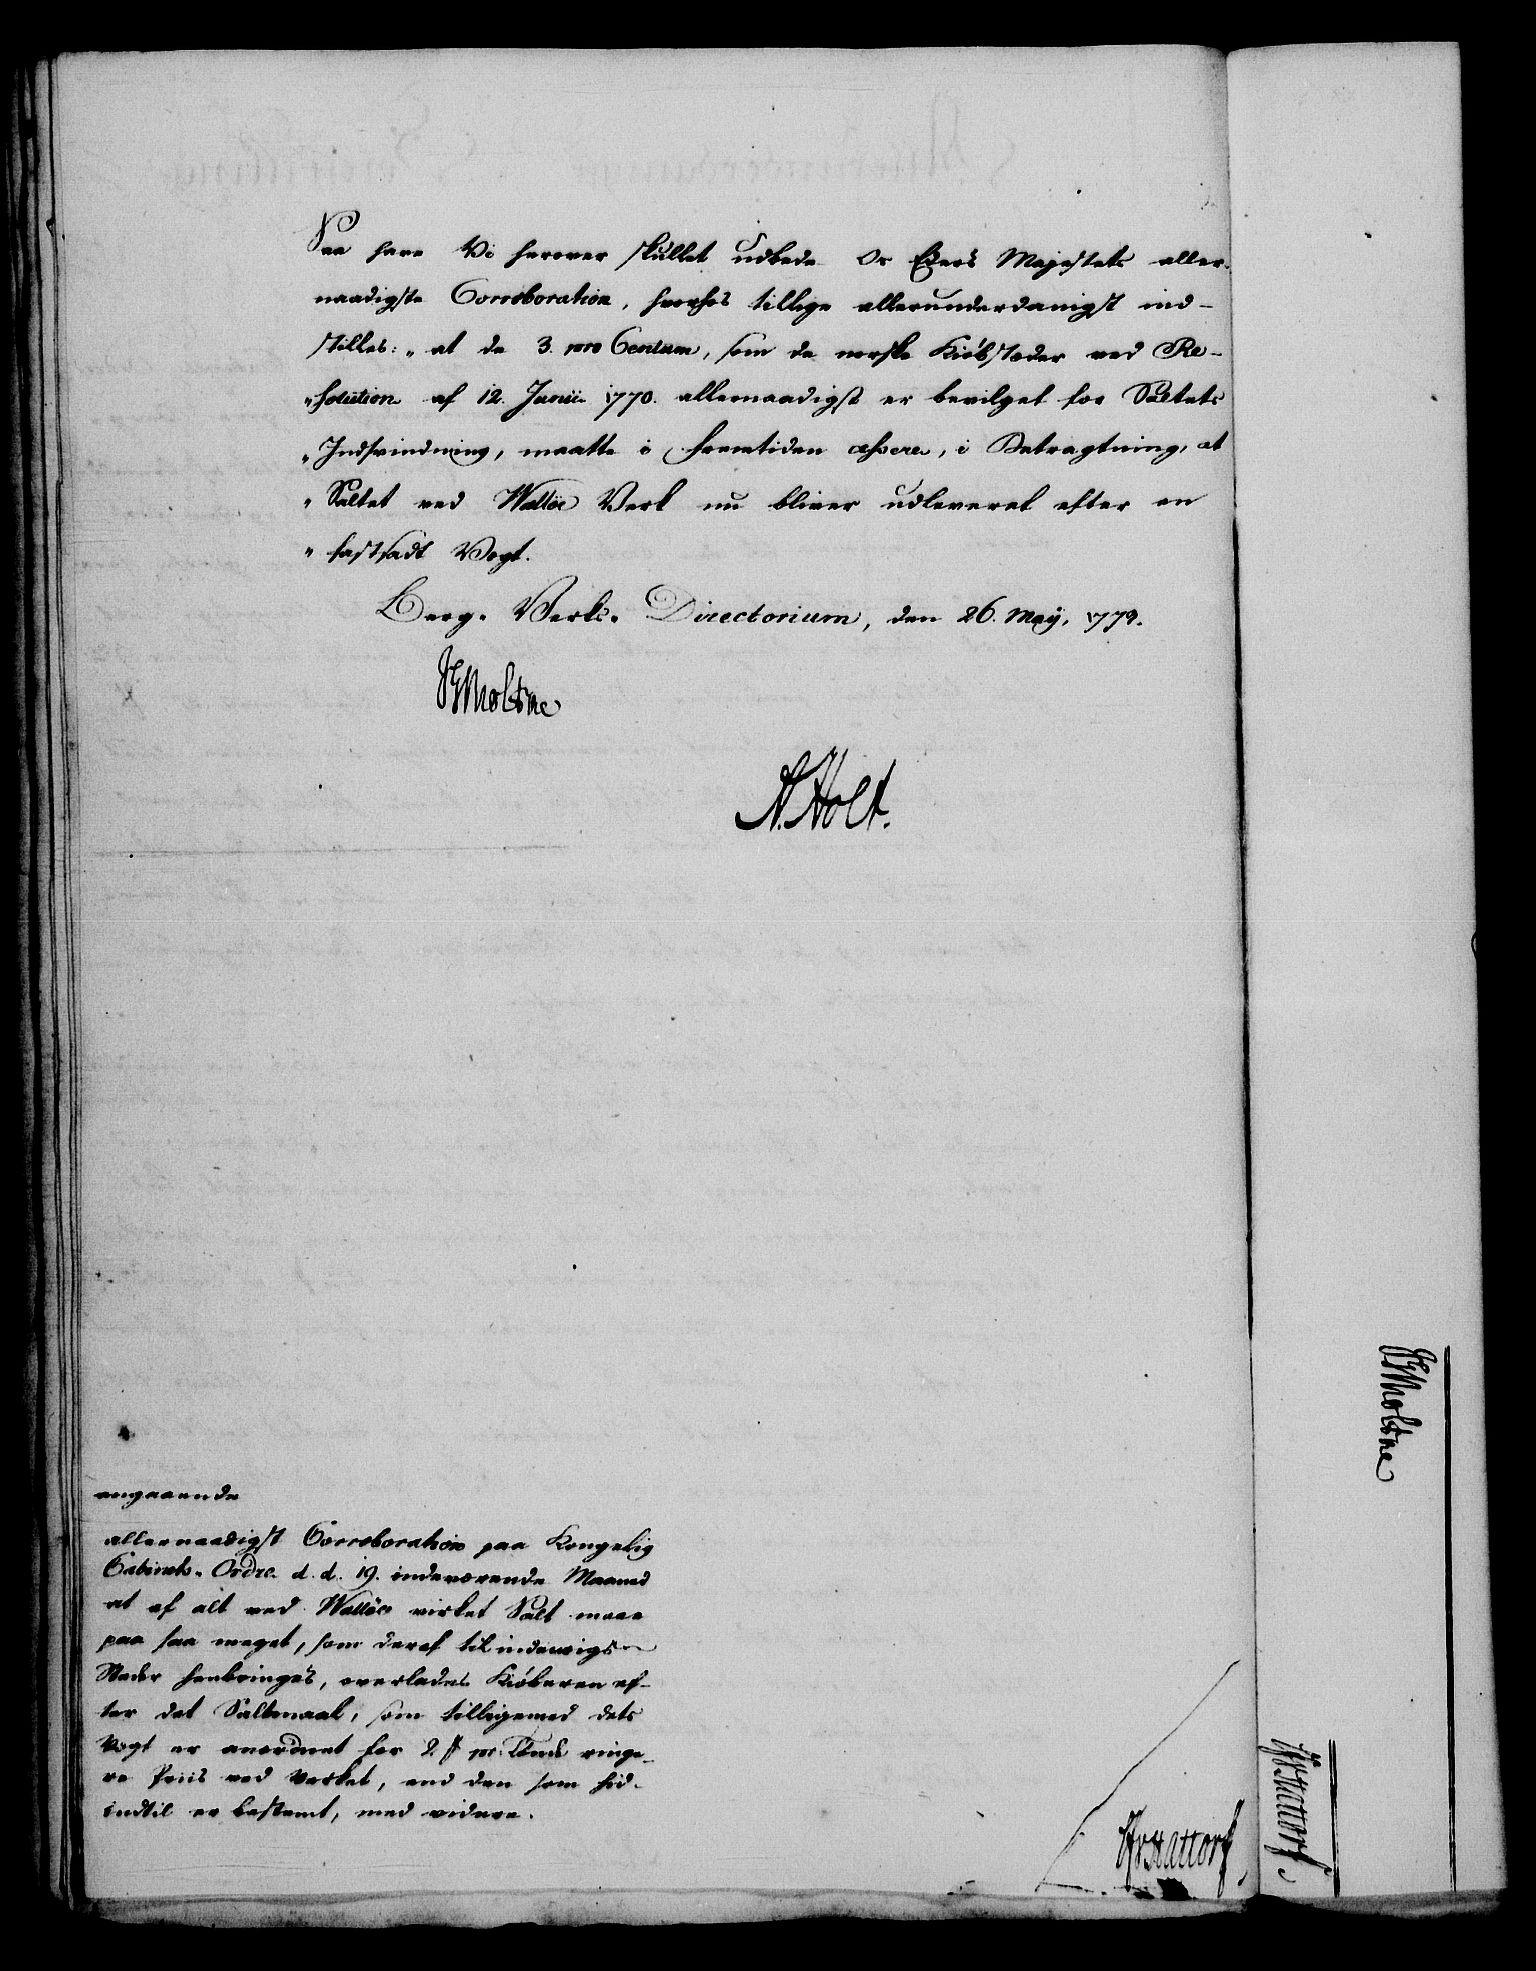 Saa have Vi herover skullet udbede Os Eders Majestets aller-
naadigste Corroboration, hvorhos tillige allerunderdanigst ind-
stilles: „at de 3. pro Centum, som de norske Kiöbstæder ved Re-
„solution af 12. Junii 1770. allernaadigst er bevilget for Saltets
„Indsvindning, maatte i Fremtiden cessere, i Betragtning, at
„Saltet ved Walløe Verk nu bliver udleveret efter en
„fastsadt Vegt.
Berg-Verks-Directorium, den 26. Maÿ, 1779.
Moltke
A. Holt.
angaaende
allernaadigst Corroboration paa Kongelig
Cabinets-Ordre d. d. 19. indeværende Maaned
at af alt ved Walløe virket Salt maae
paa saa meget, som deraf til
Stæder henbringes, overlades Kiöberen ef-
ter det Saltmaal, som tilligemed dets
Vegt er anordnet for 2 ß pr. Tønde ringe-
re Priis ved Verket, end den som hid-
indtil er bestemt, med videre.
Moltke
Hattorf
Hattorf